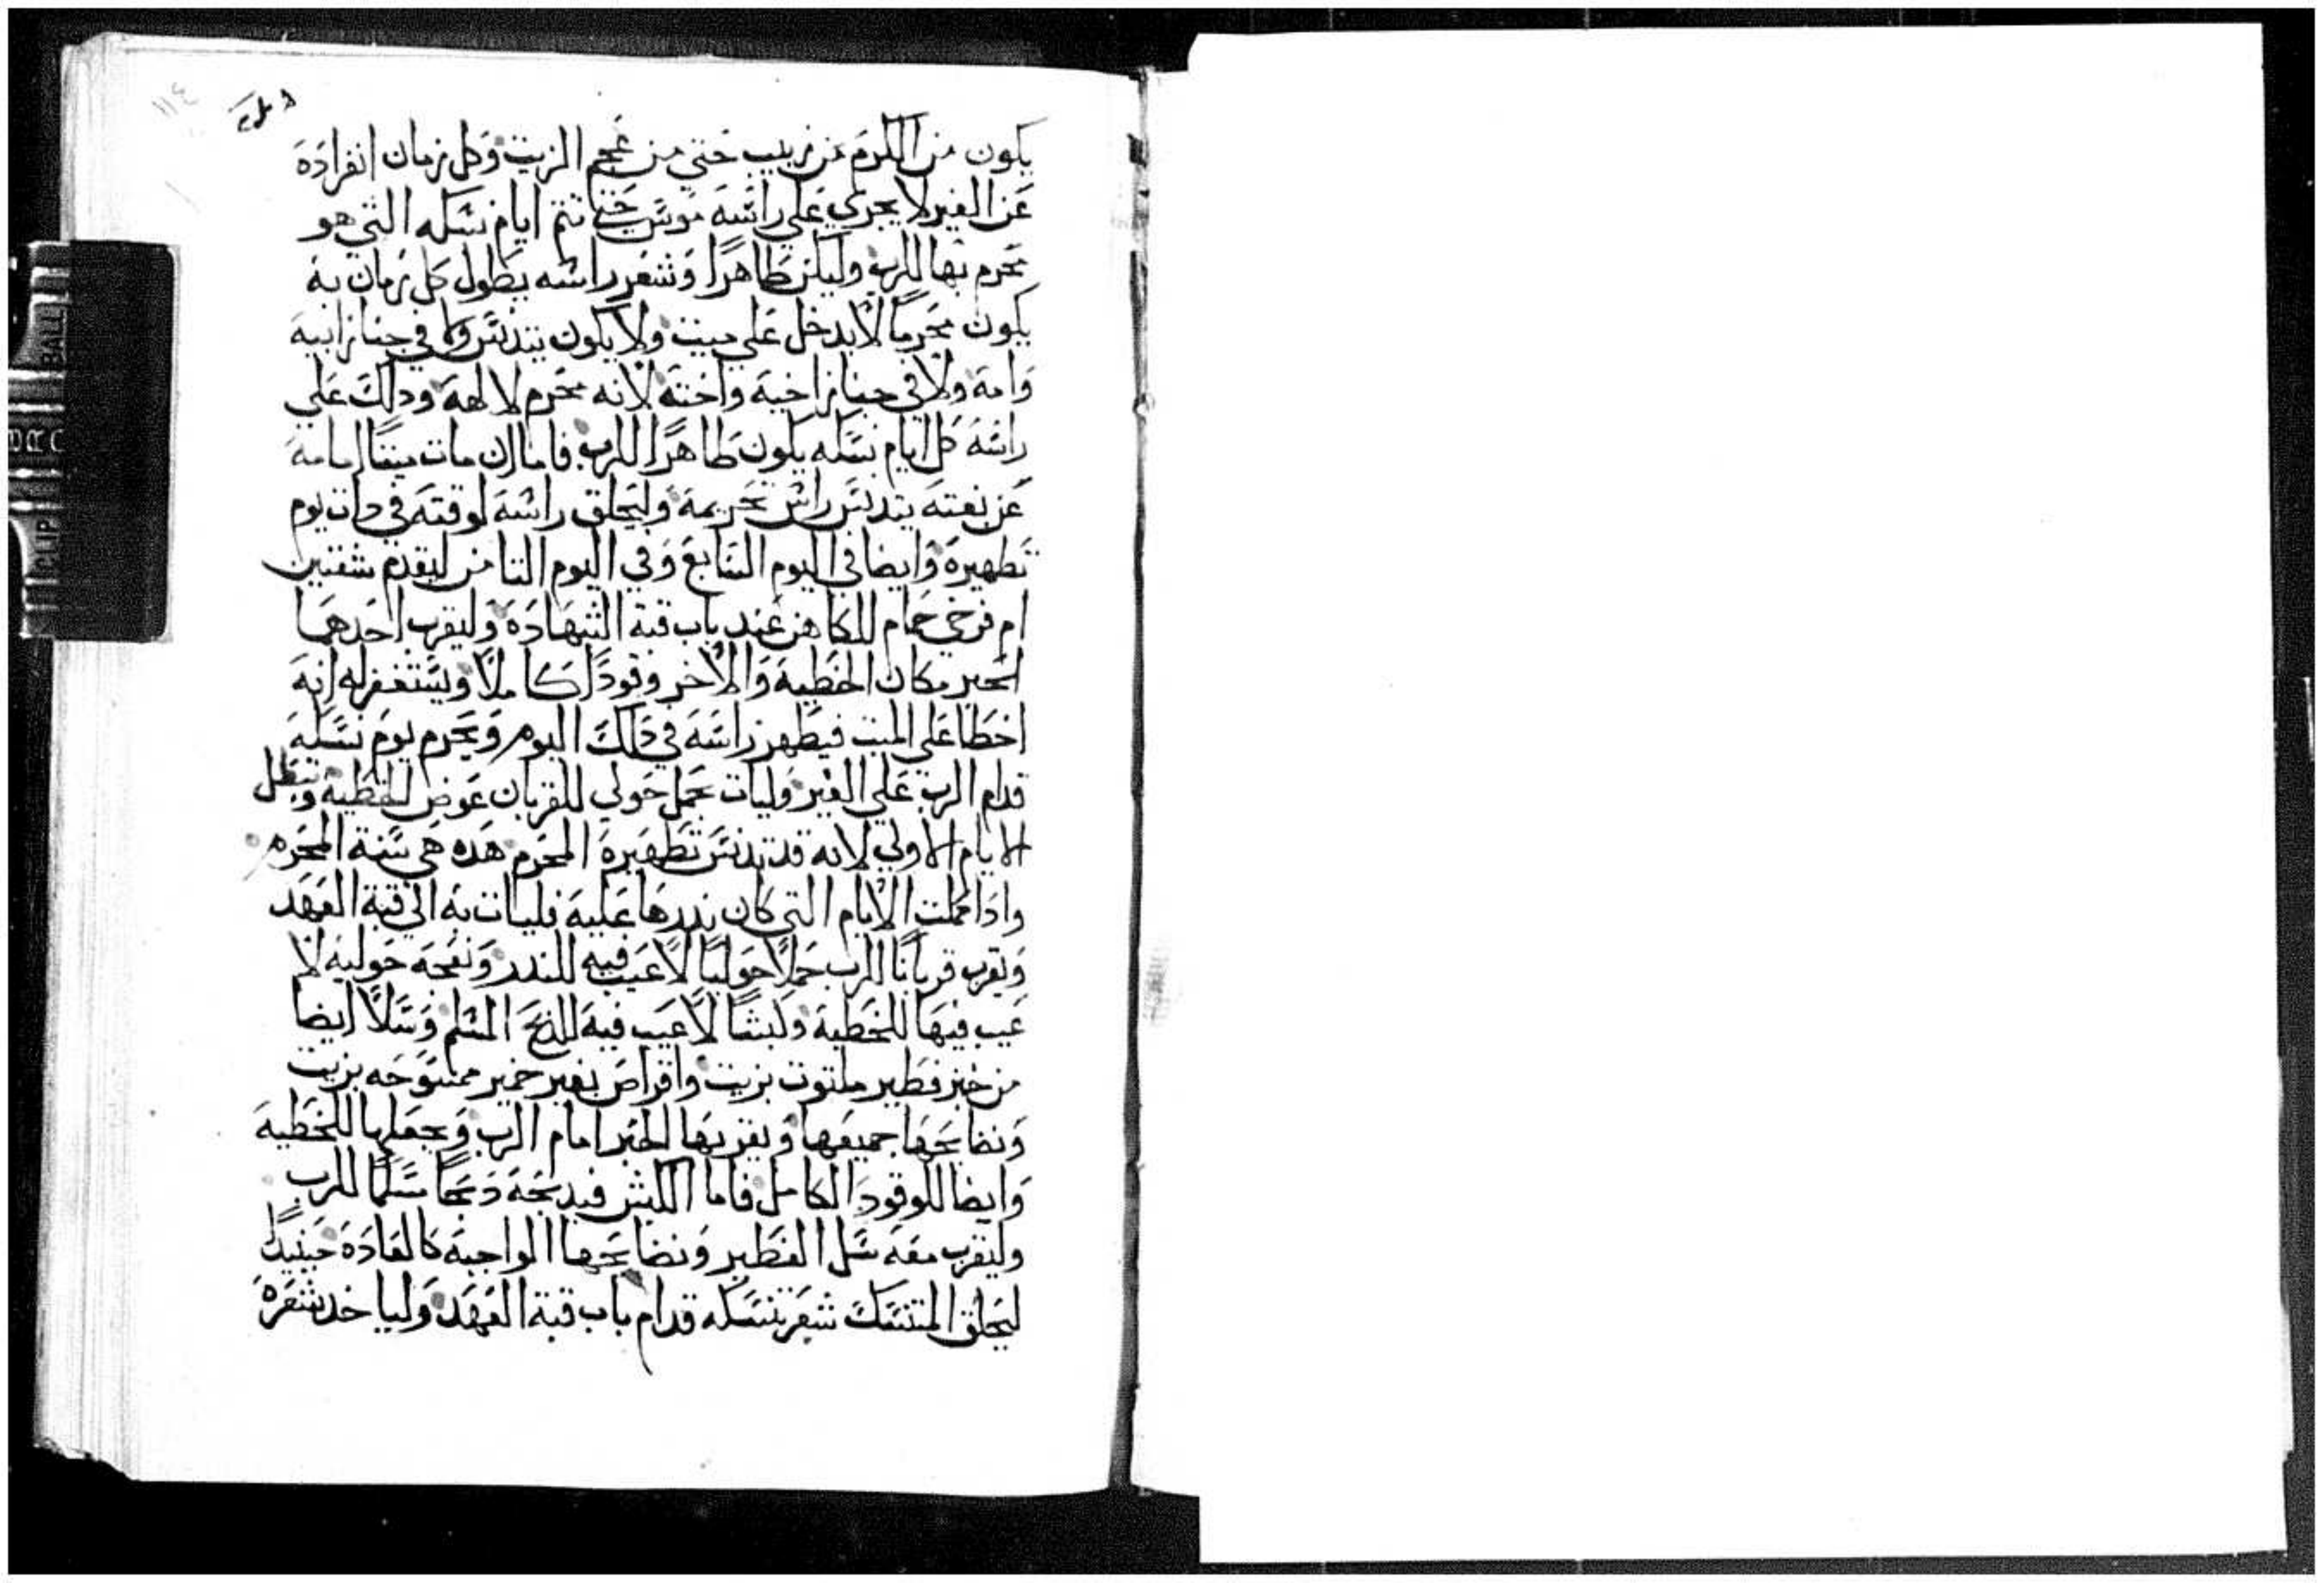 ١١٤
يكون من الكرم من زبيب حتي من عجم الزيت وكل زمان انفراده
عن الغير لا يجري علي راسه موس حتي تتم ايام نسكه التي هو
محرم بها للرب وليكن طاهرًا وشعر راسه يطول كل زمان به
يكون محرمًا لا يدخل علي ميت ولا يكون يتدنس ولا في جنازابيه
وامه ولا في جنازاخيه واخته لانه محرم لالهه ودلك علي
راسه كل ايام نسكه يكون طاهرًا للرب فاما ان مات ميتا امامه
عن بغته يتدنس راس تحريمه وليحلق راسه لوقته في دات يوم
تطهيره وايضا في اليوم السابع وفي اليوم التامن ليقدم شفنين
ام فرخي حمام للكاهن عند باب قبة الشهاده وليقرب احدهما
الحبر مكان الخطيه والاخر وقودًا كاملًا ويستغفر له انه
اخطا علي الميت فيطهر راسه في دلك اليوم ويحرم يوم نسكه
قدام الرب علي الغير وليات بحمل حولي للقربان عوض للخطيه وتبطل
الايام الاولي لانه قد تدنس تطهيره المحرم هده هي سنة المحرم
وادا كملت الايام التي كان ندرها عليه فليات به الي قبة العهد
ويقرب قربانًا للرب حملًا حوليًا لا عيب فيه للندر ونعجه حوليه لا
عيب فيها للخطيه وكبشًا لا عيب فيه للدبح المسلم وسلًا ايضا
من خبز فطير ملتوت بزيت واقراص بغير خمير ممسوحه بزيت
ونضايحها جميعها ويقربها الحبر امام الرب ويجعلها للخطيه
وايضا للوقود الكامل فاما الكبش فيدبحه دبحًا سلمًا للرب
وليقرب معه سل الفطير ونضايحها الواجبه كالعاده حينيدًا
ليحلق المتنسك شعر تنسكه قدام باب قبة العهد ولياخد شعره